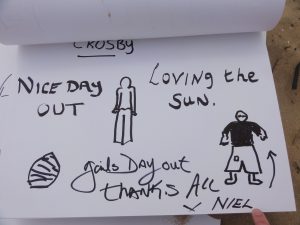 CROSBY
NICE DAY
OUT
LOVING the
SUN.
girls DAY out
THANKS ALL
NIEL